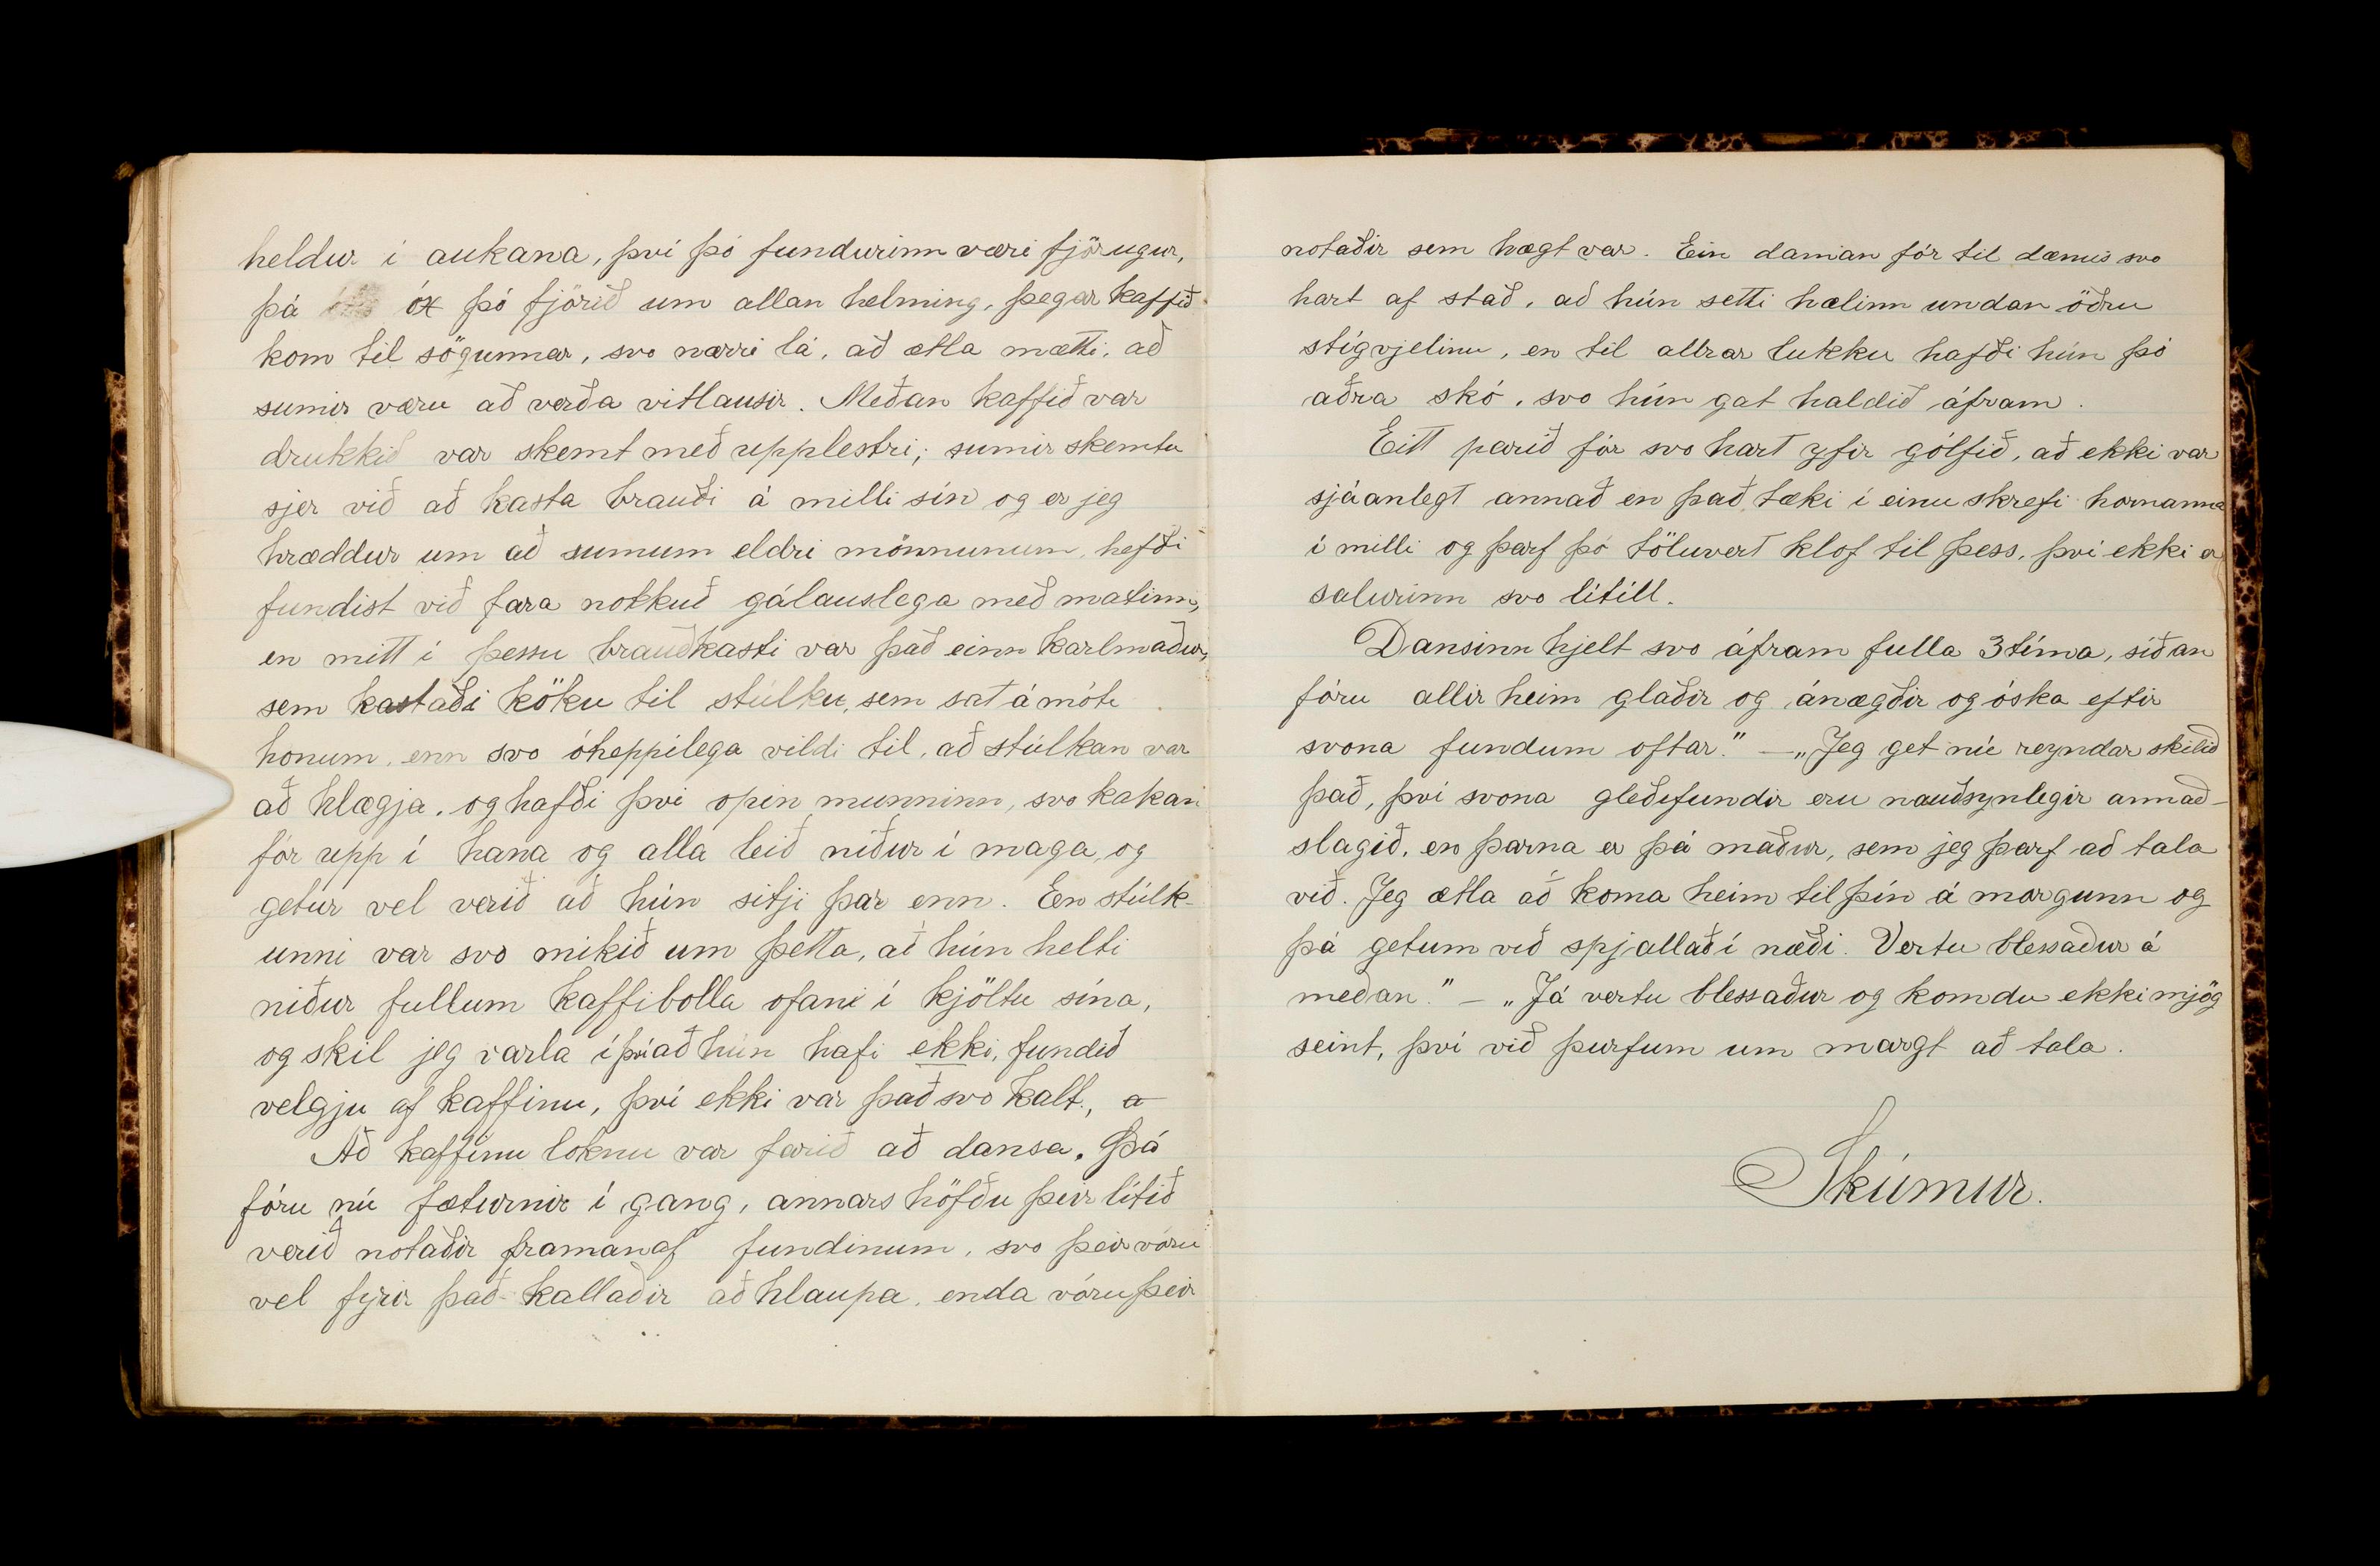 heldur í aukana, því þó fundurinn væri fjörugur,
þá óx þó fjörið um allan helming, þegar kaffið
kom til sögunnar, svo nærri lá, að ætla mætti, að
sumir væru að verða vitlausir. Meðan kaffið var
drukkið var skemt með upplestri; sumir skemtu
sjer við að kasta brauði á milli sín og er jeg
hræddur um að sumum eldri mönnunum, hefði
fundist við fara nokkuð gálauslega með matinn,
en mitt í þessu brauðkasti var það einn karlmaður,
sem kastaði köku til stúlku, sem sat á móti
honum, enn svo óheppilega vildi til, að stúlkan var
að hlægja, og hafði því opin munninn, svo kakan
fór upp í hana og alla leið niður í maga, og
getur vel verið að hún sitji þar enn. En stúlk-
unni var svo mikið um þetta, að hún helti
niður fullum kaffibolla ofaní í kjöltu sína,
og skil jeg varla í því að hún hafi ekki, fundið
velgju af kaffinu, því ekki var það svo kalt., a
Að kaffinu loknu var farið að dansa. Þá
fóru nú fæturnir í gang, annars höfðu þeir lítið
verið notaðir framanaf fundinum, svo þeir vóru
vel fyrir það kallaðir að hlaupa, enda vóru þeir
notaðir sem hægt var. Ein daman fór til dæmis svo
hart af stað, að hún setti hælinn undan öðru
stígvjelinu, en til allrar lukku hafði hún þó
aðra skó, svo hún gat haldið áfram.
Eitt parið fór svo hart yfir gólfið, að ekki var
sjáanlegt annað en það, tæki í einu skrefi hornanna
í milli og þarf þó töluvert klof til þess, því ekki er
salurinn svo lítill.
Dansinn hjelt svo áfram fulla 3 tíma, síðan
fóru allir heim glaðir og ánægðir og óska eftir
svona fundum oftar." — „Jeg get nú reyndar skilið
það, því svona gleðifundir eru nauðsynlegir annað-
slagið, en þarna er þá maður, sem jeg þarf að tala
við. Jeg ætla að koma heim til þín á morgunn og
þá getum við spjallað í næði. Vertu blessaður á
meðan." — „Já vertu blessaður og komdu ekki mjög
seint, því við þurfum um margt að tala.
Skúmur.